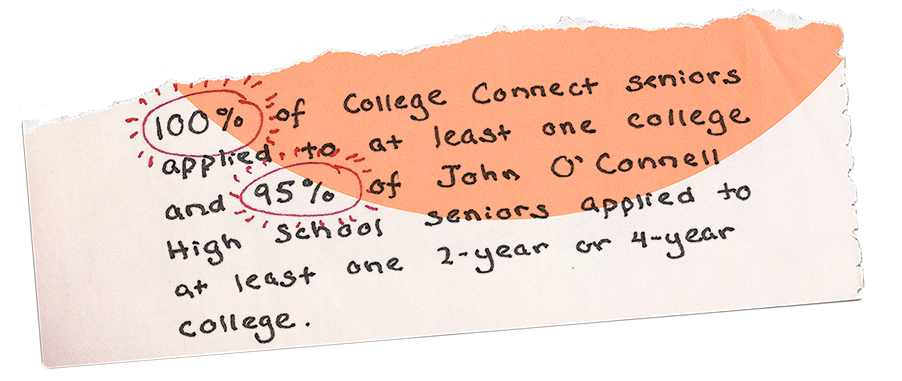 100% of College Connect seniors
applied to at least one college
and 95% of John O'Connell
High School seniors applied to
at least one 2-year or 4-year
college.